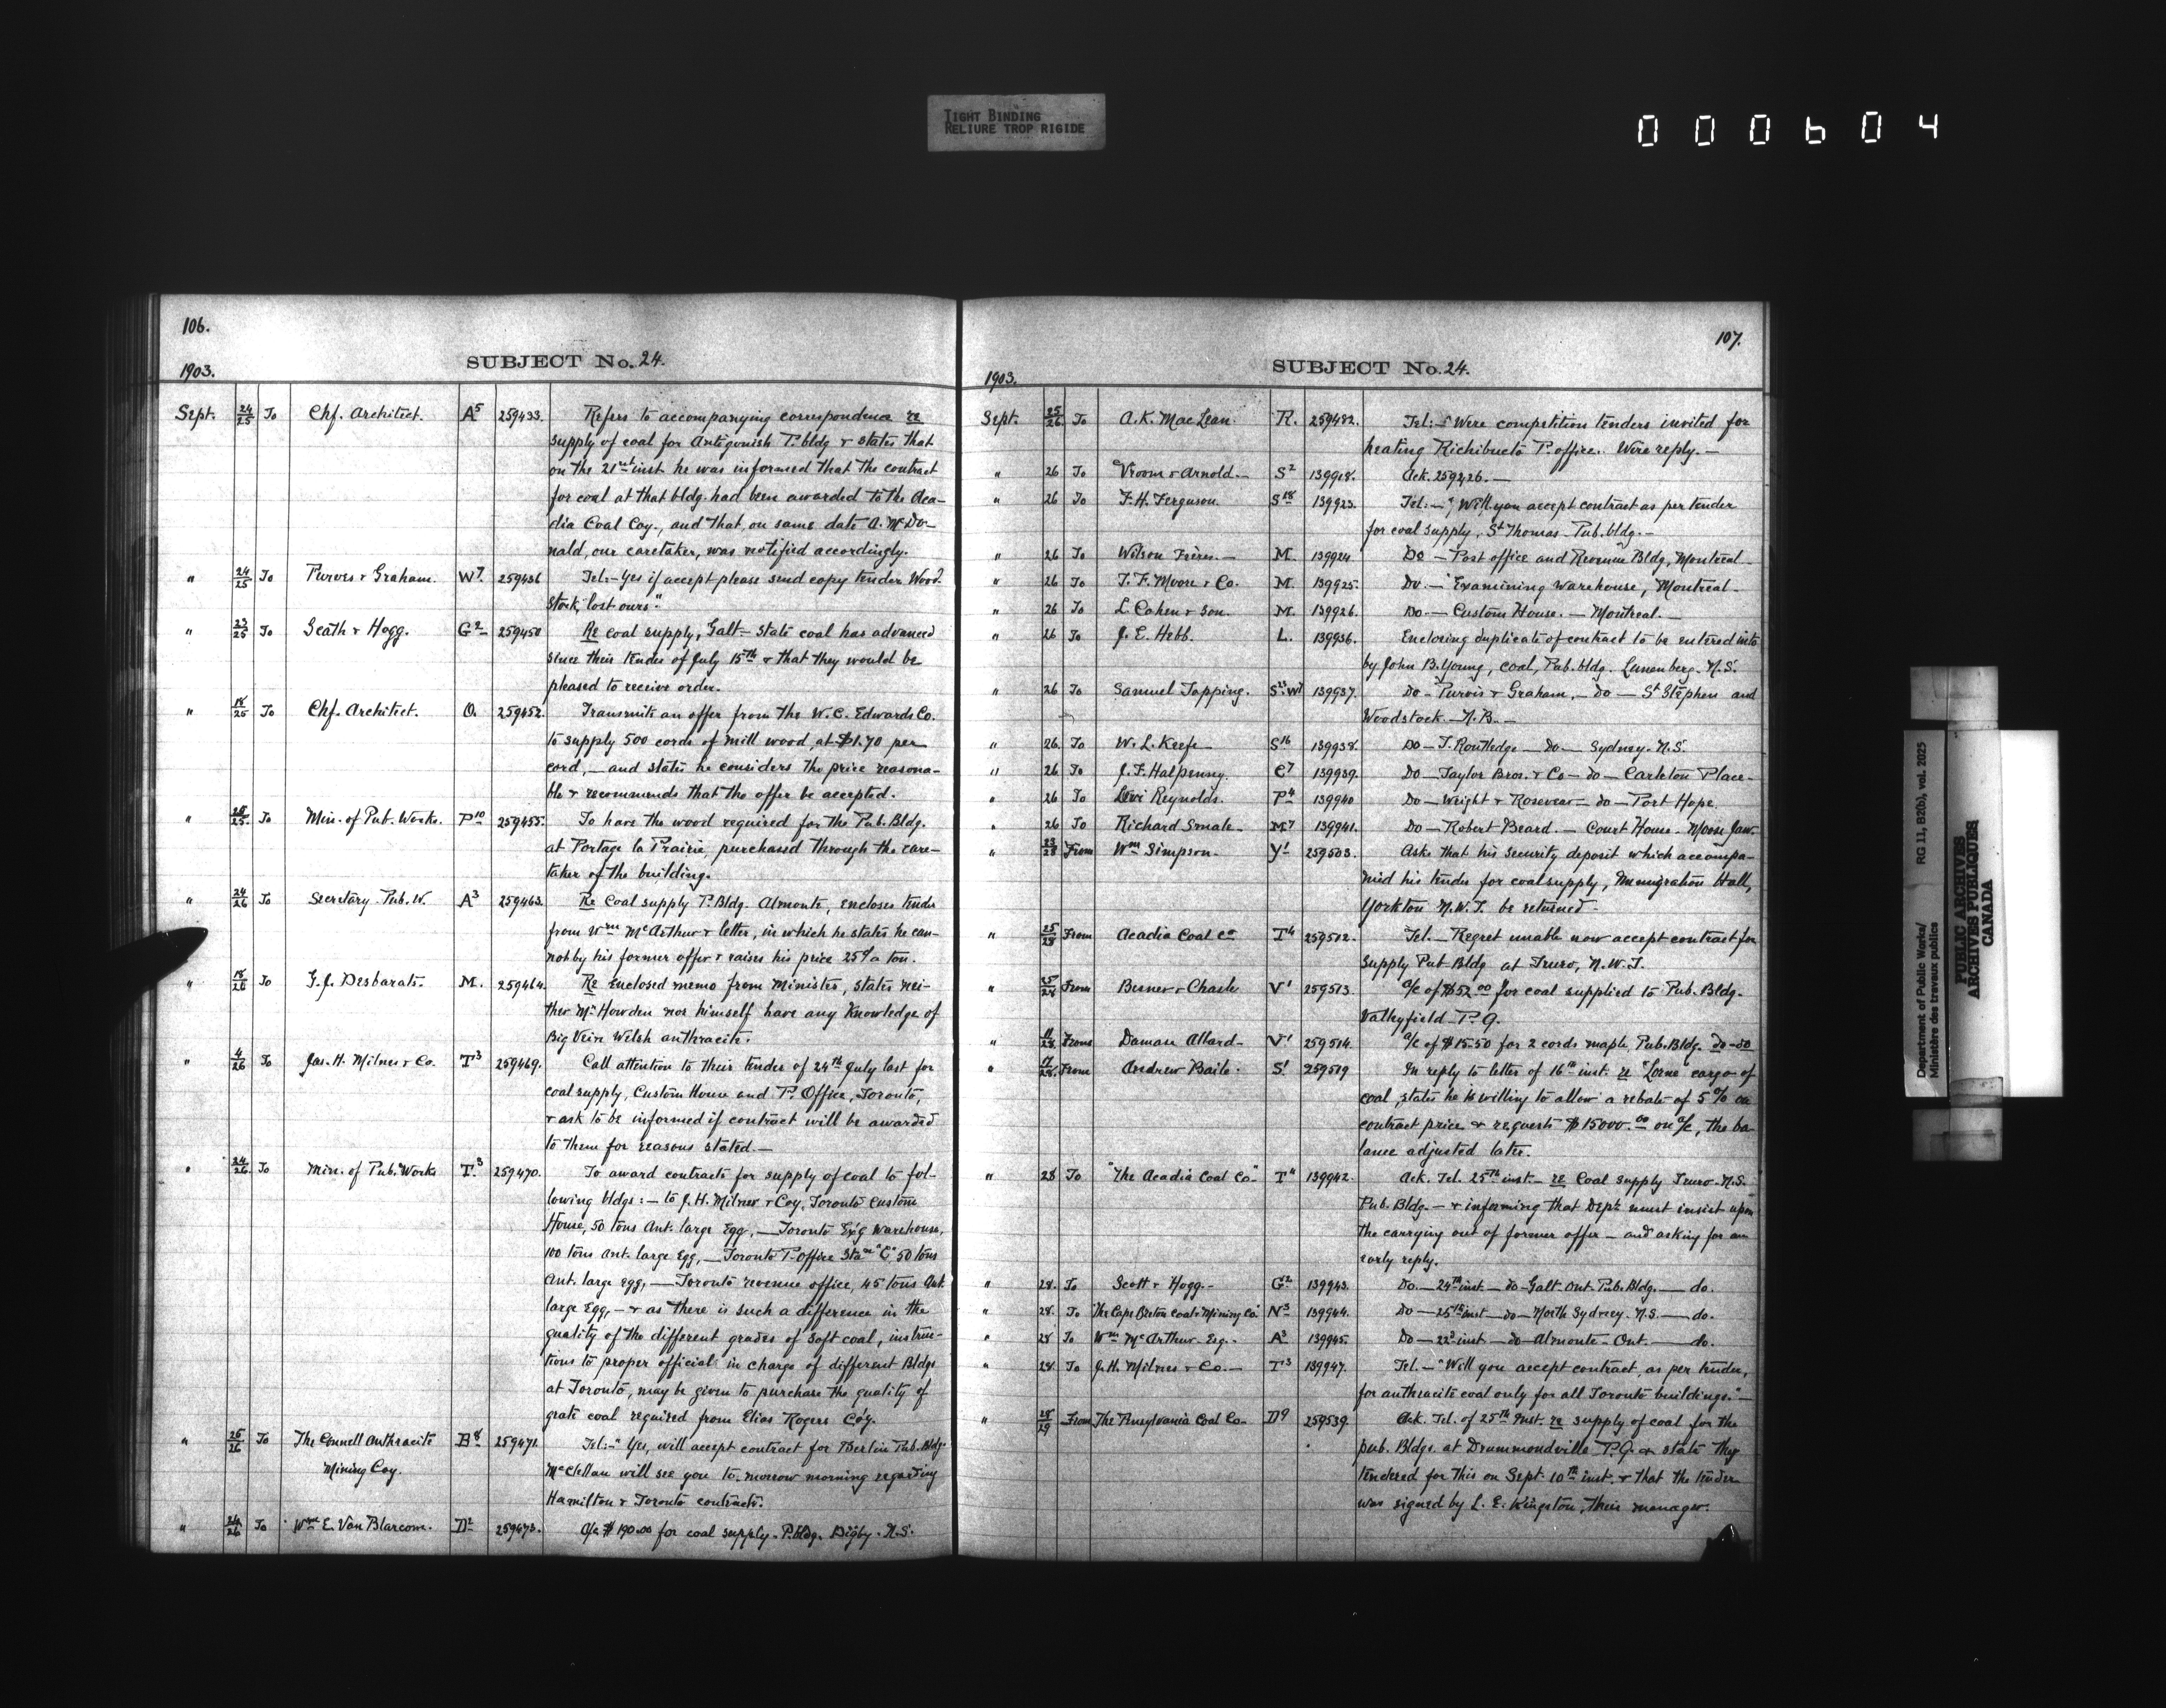 TIGHT BINDING
RELIURE TROP RIGIDE
000604
106.
SUBJECT No. 24.
1903.
Sept. 24/25 To Chf. Architect. A5 259433. Refers to accompanying correspondence re
supply of coal for Antigonish P. bldg & states that
on the 21st inst. he was informed that the contract
for coal at that bldg. had been awarded to the Aca-
dia Coal Coy., and that, on same date A. McDo-
nald, our caretaker, was notified accordingly.
" 24/25 To Purves & Graham. W7. 259436 Tel:- Yes if accept please send copy tender Wood-
stock, lost ours".
" 23/25 To Scath & Hogg. G2 259450 Re coal supply, Galt - state coal has advanced
since their tender of July 15th & that they would be
pleased to receive order.
" 18/25 To Chf. Architect. O. 259452. Transmits an offer from the W. C. Edwards Co.
to supply 500 cords of mill wood, at $1.70 per
cord, - and states he considers the price reasona-
ble & recommends that the offer be accepted.
" 25/25. To Min. of Pub. Works. P10 259455. To have the wood required for the Pub. Bldg.
at Portage la Prairie, purchased through the care-
taker of the building.
" 24/26 To Secretary - Pub. W. A3 259463. Re Coal supply P. Bldg. Almonte, encloses tender
from Wm McArthur & letter, in which he states he can-
not by his former offer & raises his price 25¢ a ton.
" 18/26 To G. J. Desbarats. M. 259464. Re Enclosed memo from Minister, states nei-
ther Mr Howden nor himself have any knowledge of
Big Vein Welsh anthracite.
" 4/26 To Jas. H. Milnes & Co. T3 259469. Call attention to their tender of 24th July last for
coal supply, Custom House and P. Office, Toronto,
& ask to be informed if contract will be awarded
to them for reasons stated. -
" 24/26. To Min. of Pub. Works T3 259470. To award contracts for supply of coal to fol-
lowing bldgs: - to J. H. Milnes & Coy, Toronto Custom
House, 50 tons Ant. large Egg, - Toronto Ex'g Warehouse,
100 tons Ant. large Egg, - Toronto P. Office Stan "C" 50 tons
Ant. large egg, - Toronto revenue office, 45 tons Ant.
large Egg, - & as there is such a difference in the
quality of the different grades of soft coal, instruc-
tions to proper officials in charge of different Bldgs
at Toronto, may be given to purchase the quality of
grate coal required from Elias Rogers Co'y.
" 25/26 To The Connell Anthracite B8 259471. Tel:- "Yes, will accept contract for Berlin Pub. Bldg.
Mining Coy. McClellan will see you to-morrow morning regarding
Hamilton & Toronto contracts.
" 24/26 To Wm E. Van Blarcom. D2 259473. A/c $190.00 for coal supply - P. bldg. Digby - N.S.
107.
SUBJECT No. 24.
1903.
Sept. 25/26 To A. K. MacLean. R. 259482. Tel: - "Were competition tenders invited for
heating Richibucto P. office. Wire reply. -
" 26 To Vroom & Arnold. - S2 139918. Ack. 259426. -
" 26 To F. H. Ferguson. S18 139923. Tel: - "Will you accept contract as per tender
for coal supply, St Thomas - Pub. bldg. -
" 26 To Wilson Frères. - M. 139924 Do - Post office and Revenue Bldg, Montreal -
" 26 To T. F. Moore & Co. M. 139925. Do - Examining Warehouse, Montreal -
" 26 To L. Cohen & Son. M. 139926. Do. - Custom House. - Montreal. -
" 26 To J. E. Hebb. L. 139936. Enclosing duplicate of contract to be entered into
by John B. Young, coal, Pub. bldg. Lunenberg. N.S.
" 26 To Samuel Topping. S23.W7 139937. Do - Purvis & Graham, - do - St Stephen and
Woodstock - N.B. -
" 26. To W. L. Keefe - S16 139938. Do - T. Routledge - do - Sydney. N.S.
" 26 To J. F. Halpenny. C7 139939. Do - Taylor Bros. & Co - do - Carleton Place -
" 26 To Levi Reynolds. P4 139940 Do - Wright & Rosevear - do - Port Hope.
" 26 To Richard Smale - M7 139941. Do - Robert Beard. - Court House - Moose Jaw.
" 23/28 From Wm Simpson - Y1 259503. Asks that his security deposit which accompa-
nied his tender for coal supply, Immigration Hall,
Yorkton N.W.T. be returned -
" 25/28 From Acadia Coal Co T4 259512. Tel. - Regret unable now accept contract for
supply Pub Bldg at Truro, N.W.T.
" 25/28 From V1 259513. A/c of $52.00 for coal supplied to Pub. Bldg.
Valleyfield - P.Q.
" 11/28 From Damase Allard - V1 259514. A/c of $15.50 for 2 cords maple, Pub. Bldg. do - do
" 17/28. From Andrew Baile. S1 259519 In reply to letter of 16th inst. re "Lorne" cargo of
coal, states he is willing to allow a rebate of 5% on
contract price & requests $15000.00 on a/c, the ba-
lance adjusted later.
" 28 To "The Acadia Coal Co" T4 139942. Ack. Tel. 25th inst. - re Coal supply Truro - N.S.
Pub. Bldg. - & informing that Dept. must insist upon
the carrying out of former offer - and asking for an
early reply.
" 28. To Scott & Hogg. - G2 139943. Do. - 24th inst - do - Galt Ont. Pub. Bldg. - do.
" 28. To "The Cape Breton Coal & Mining Co" N3 139944. Do - 25th inst - do - North Sydney. N.S. - do.
" 28 To Wm McArthur - Esq. - A3 139945. Do - 22d inst - do - Almonte - Ont. - do.
" 28. To J. H. Milnes & Co. - T3 139947. Tel. - "Will you accept contract, as per tender,
for anthracite coal only for all Toronto buildings." -
" 28/29 From The Pensylvania Coal Co - D9 259539. Ack. Tel. of 25th inst. re supply of coal for the
pub. Bldgs. at Drummondville P.Q. & state they
tendered for this on Sept. 10th inst. & that the tender
was signed by L. E. Kingston, their manager.
Department of Public Works/
Ministère des travaux publics
RG 11, B2(b), vol. 2025
PUBLIC ARCHIVES
ARCHIVES PUBLIQUES
CANADA